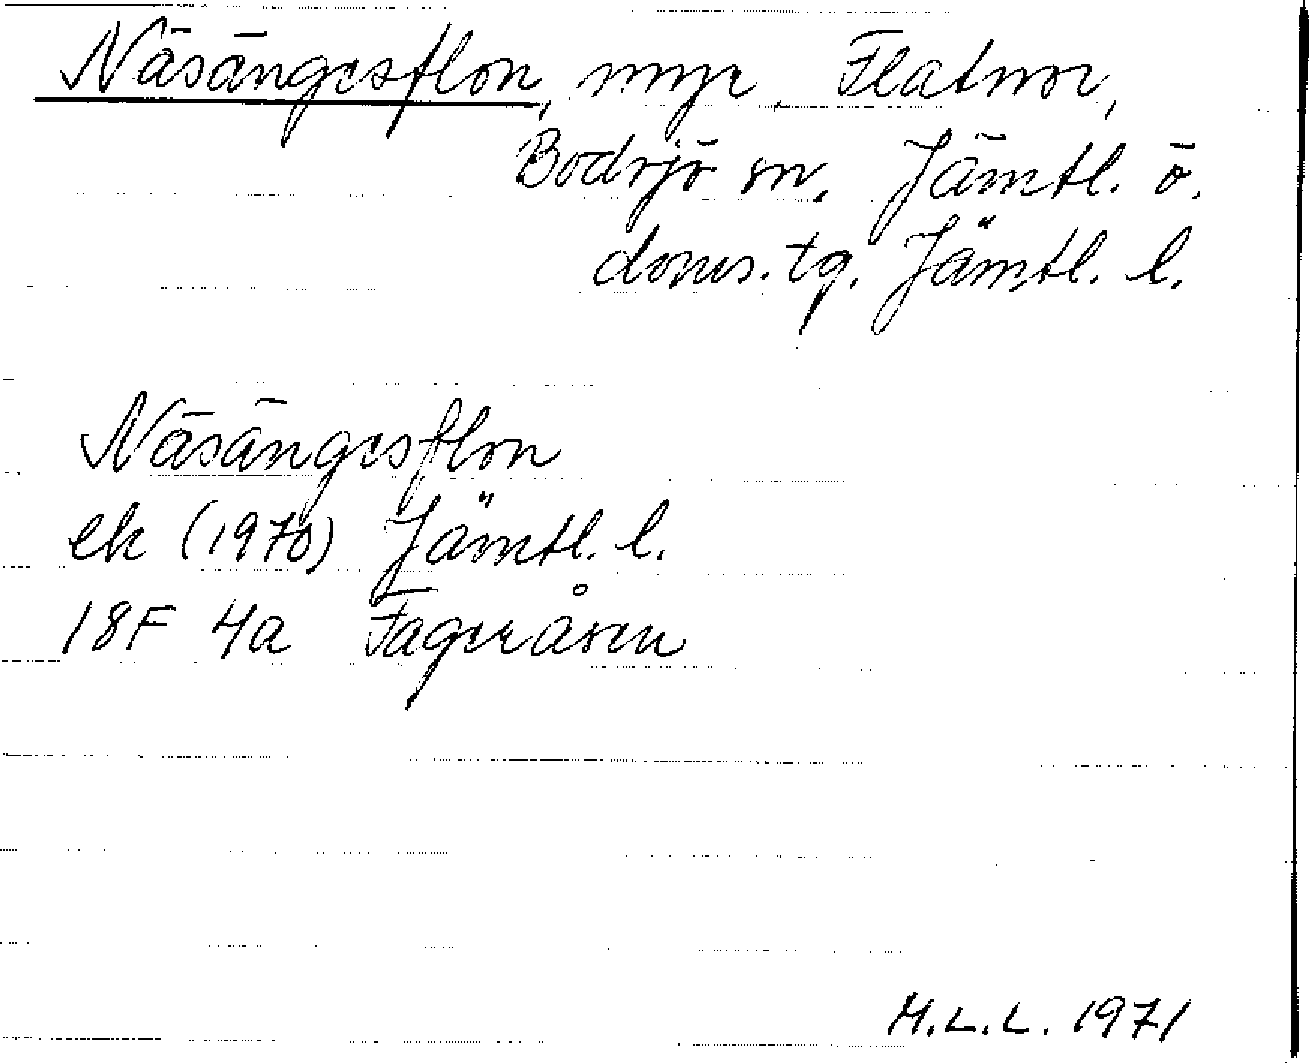 Näsängesflon, myr, Flatnor,
Bodsjö sn. Jämtl. ö.
doms. tg. Jämtl. l.
Näsängesflon
ek (1970) Jämtl. l.
18F 4a Fageråsen
M.L.L. 1971